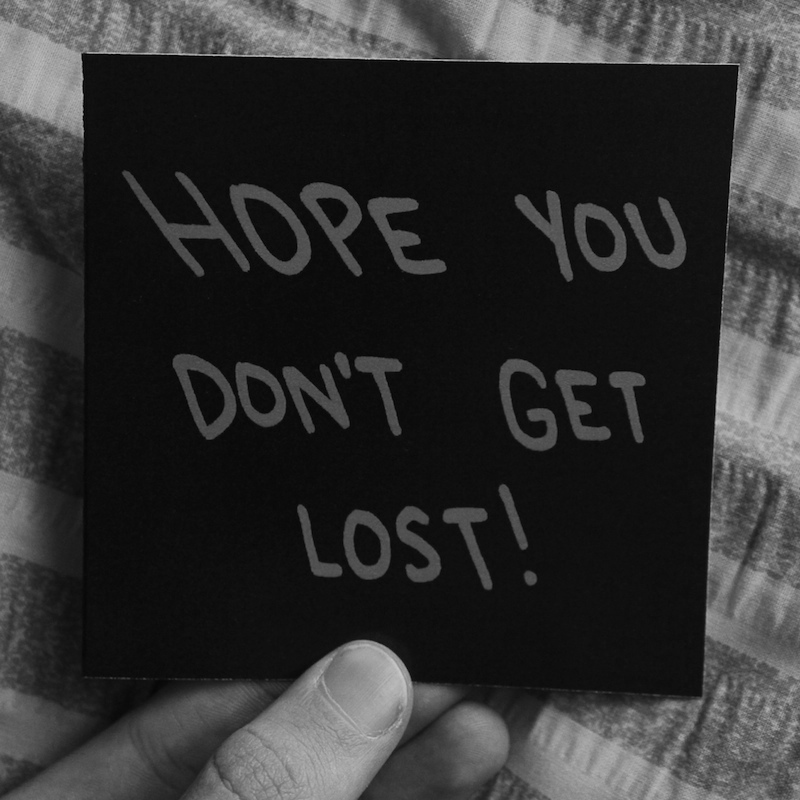 HOPE YOU
DON'T GET
LOST!